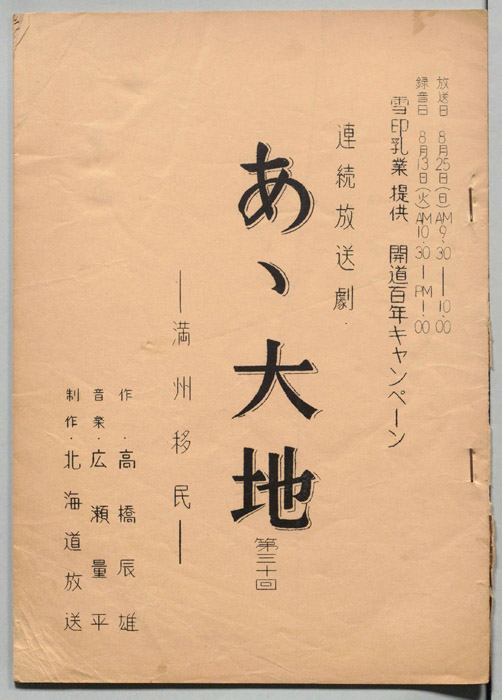 放送日 8月25日(日)AM9.30―10.00
録音日 8月13日(火)AM10.30―PM1.00
雪印乳業 提供 開道百年キャンペーン
連続放送劇.
あゝ大地
第三十回
―満州移民―
作・高橋辰雄
音楽・広瀬量平
制作・北海道放送